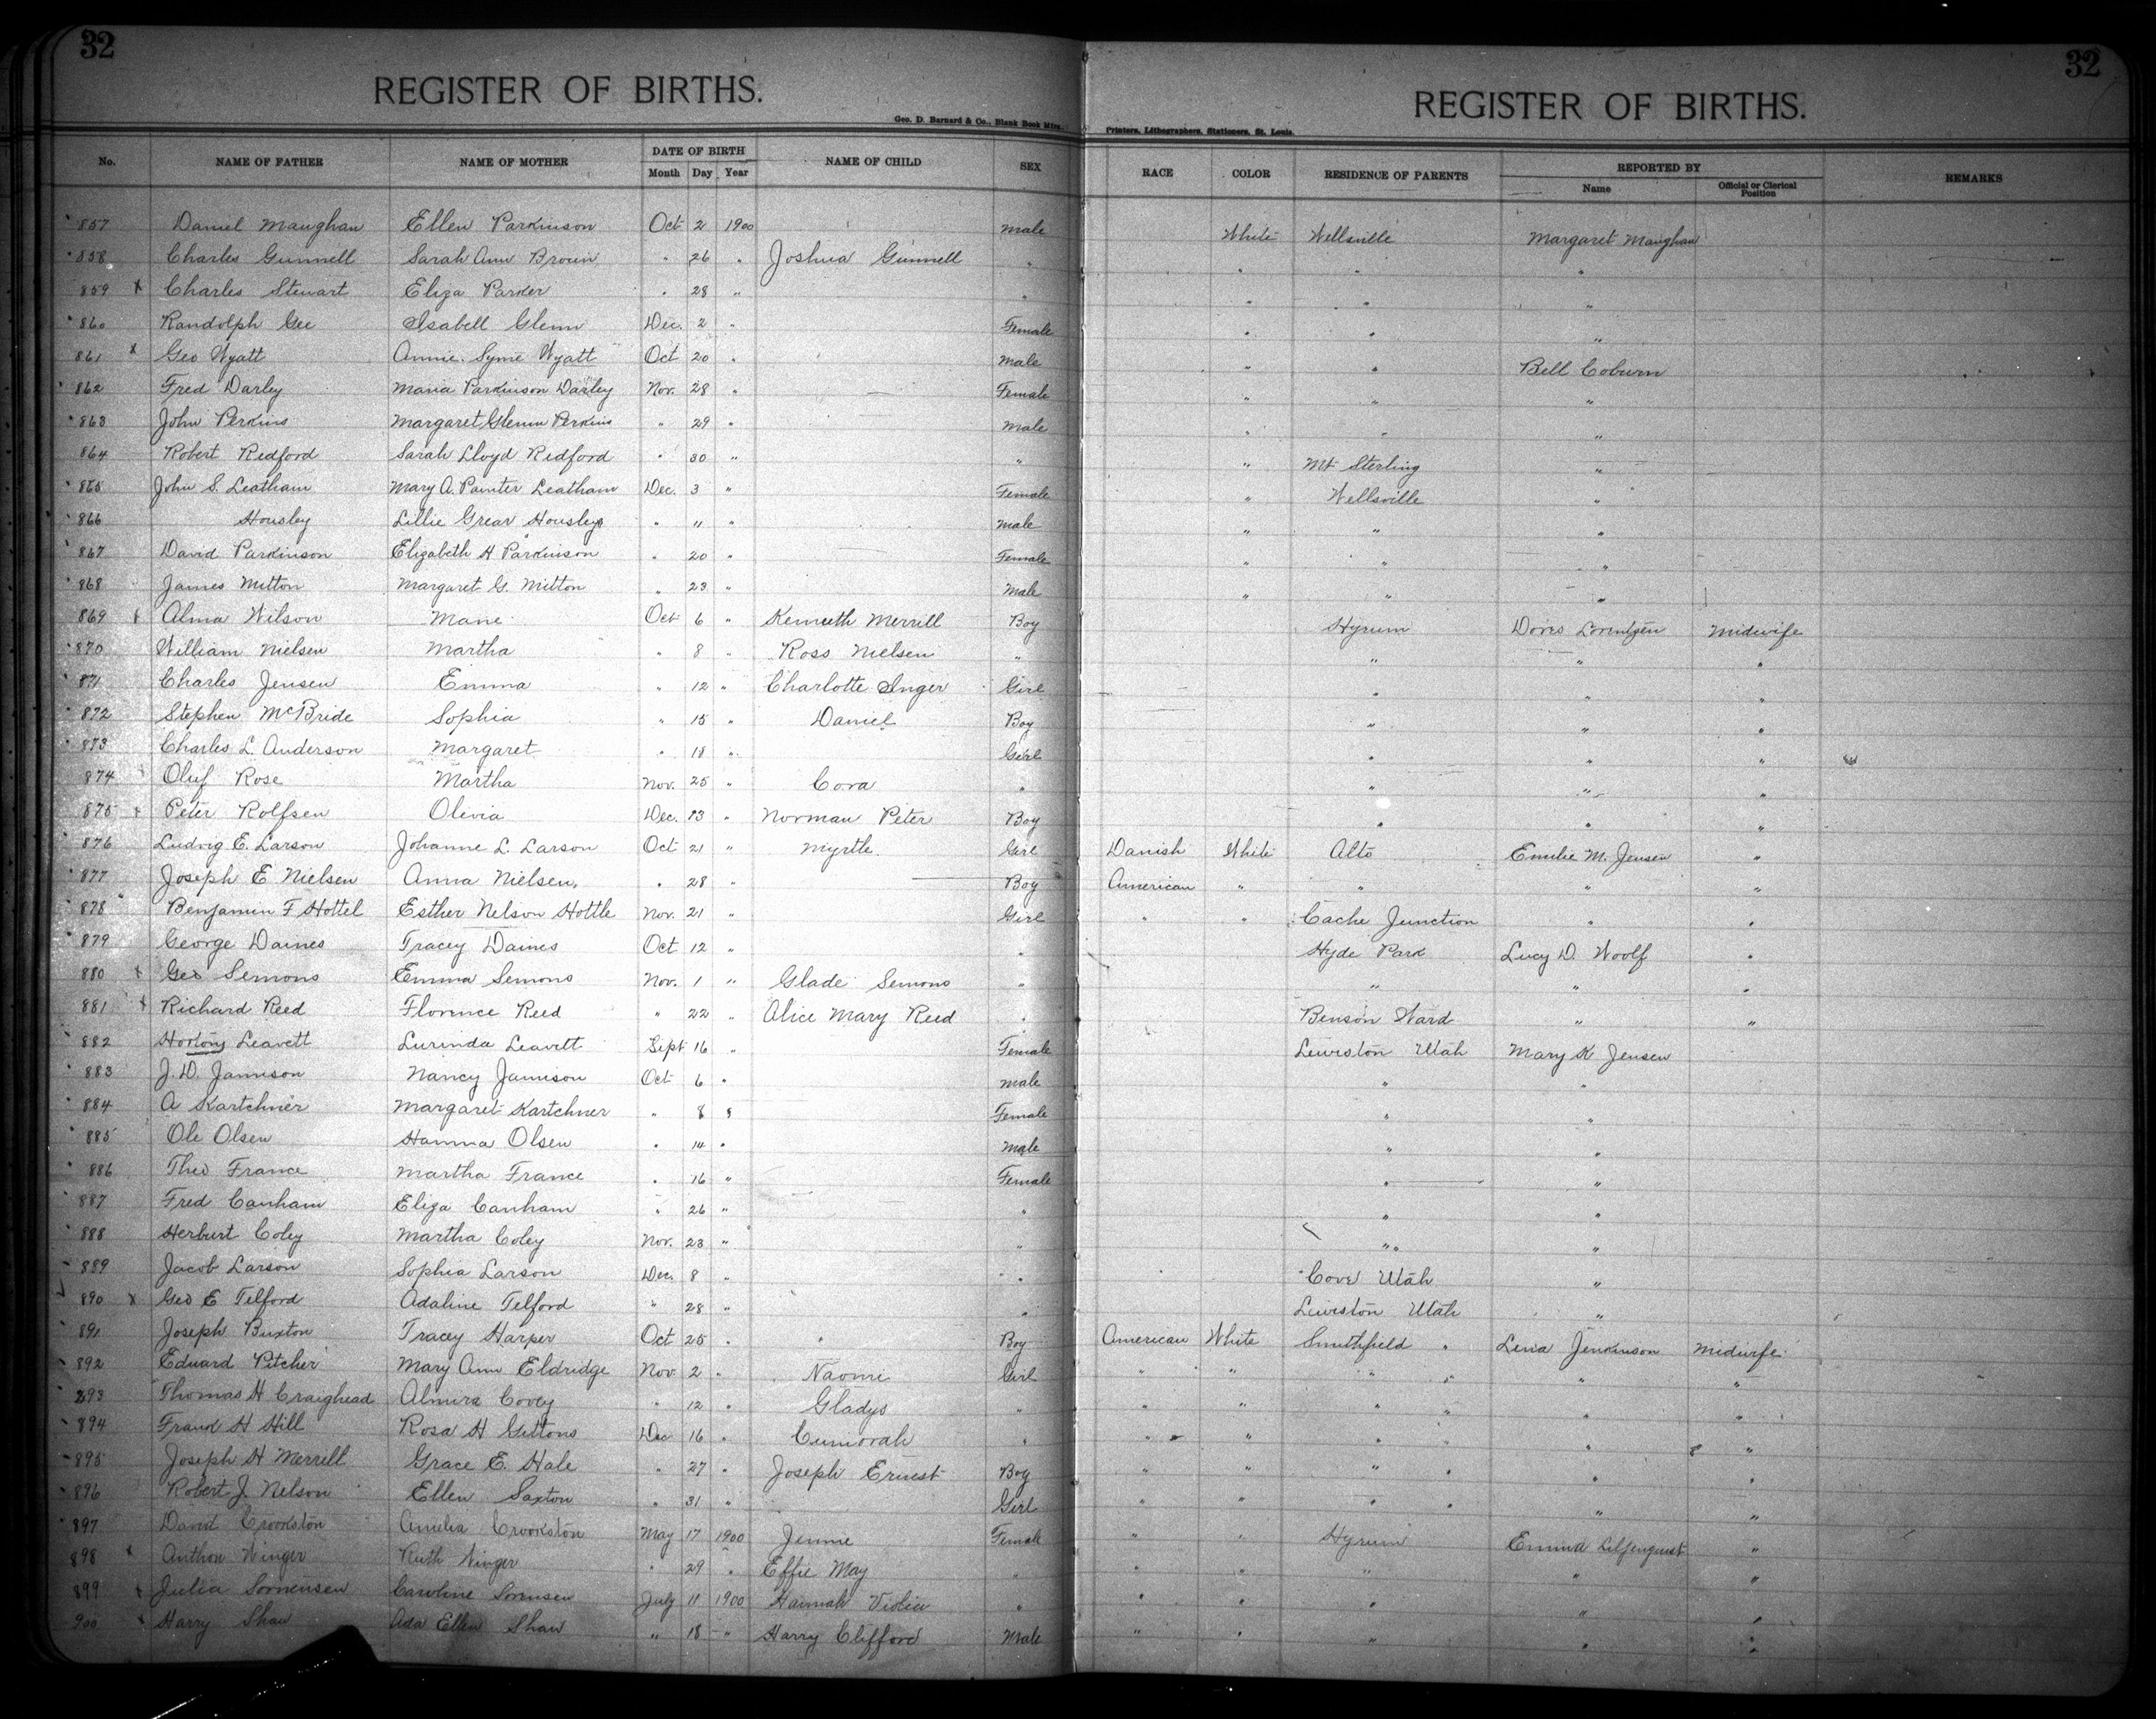 32 32
REGISTER OF BIRTHS. REGISTER OF BIRTHS.
Geo. D. Barnard & Co., Blank Book Mfrs. Printers, Lithographers, Stationers, St. Louis.
No. NAME OF FATHER NAME OF MOTHER DATE OF BIRTH Month Day Year NAME OF CHILD SEX RACE COLOR RESIDENCE OF PARENTS REPORTED BY Name Official or Clerical Position REMARKS
857 Daniel Maughan Ellen Parkinson Oct 2 1900 Male White Wellsville Margaret Maughan
858 Charles Gunnell Sarah Ann Brown " 26 " Joshua Gunnell " " " "
859 x Charles Stewart Eliza Parker " 28 " " " " "
860 Randolph Gee Isabell Glenn Dec. 2 " Female " " "
861 x Geo Wyatt Annie Syme Wyatt Oct 20 " Male " " Bell Coburn
862 Fred Darley Maria Parkinson Darley Nov. 28 " Female " " "
863 John Perkins Margaret Glenn Perkins " 29 " Male " " "
864 Robert Redford Sarah Lloyd Redford " 30 " " " Mt Sterling "
865 John S. Leatham Mary A. Painter Leatham Dec. 3 " Female " Wellsville "
866 Housley Lillie Grear Housley " 11 " Male " " "
867 David Parkinson Elizabeth H Parkinson " 20 " Female " " "
868 James Mitton Margaret G. Mitton " 23 " Male " " "
869 x Alma Wilson Marie Oct 6 " Kenneth Merrill Boy Hyrum Dores Lorentzen Midwife
870 William Nielsen Martha " 8 " Ross Nielsen " " " "
871 Charles Jensen Emma " 12 " Charlotte Inger Girl " " "
872 Stephen McBride Sophia " 15 " Daniel Boy " " "
873 Charles L. Anderson Margaret " 18 " Girl " " "
874 Oluf Rose Martha Nov. 25 " Cora " " " "
875 x Peter Rolfsen Olevia Dec. 13 " Norman Peter Boy " " "
876 Ludvig E. Larson Johanne L. Larson Oct 21 " Myrtle. Girl Danish White Alto Emilie M. Jensen "
877 Joseph E Nielsen Anna Nielsen. " 28 " Boy American " " " "
878 Benjamin F Hottel Esther Nelson Hottle Nov. 21 " Girl " " Cache Junction " "
879 George Daines Tracey Daines Oct 12 " " Hyde Park Lucy D. Woolf "
880 x Geo Semons Emma Semons Nov. 1 " Glade Semons " " " "
881 x Richard Reed Florence Reed " 22 " Alice Mary Reed " Benson Ward " "
882 Leavett Lurinda Leavitt Sept 16 " Female Lewiston Utah Mary K Jensen
883 J. D. Jamison Nancy Jamison Oct 6 " Male " "
884 A Kartchner Margaret Kartchner " 8 " Female " "
885 Ole Olsen Hanna Olsen " 14 " Male " "
886 Theo France Martha France " 16 " Female " "
887 Fred Canham Eliza Canham " 26 " " " "
888 Herburt Coley Martha Coley Nov. 23 " " " "
889 Jacob Larson Sophia Larson Dec. 8 " " Cove Utah "
890 x Geo E Telford Adaline Telford " 28 " " Lewiston Utah "
891 Joseph Buxton Tracey Harper Oct 25 " Boy American White Smithfield " Lena Jenkinson Midwife
892 Eduard Pitcher Mary Ann Eldridge Nov. 2 " Naomi Girl " " " " " "
893 Thomas H Craighead Almira Covey " 12 " Gladys " " " " " " "
894 Frank H Hill Rosa H Gittons Dec 16 " Cumorah " " " " " " "
895 Joseph H Merrill Grace E. Hale " 27 " Joseph Ernest Boy " " " " " "
896 Robert J. Nelson Ellen Saxton " 31 " Girl " " " " " "
897 David Crookston Amelia Crookston May 17 1900 Jennie Female " " Hyrum Emma Liljenquist "
898 x Anthon Winger Ruth Winger " 29 " Effie May " " " " " "
899 x Julia Sornensen Caroline Sorensen July 11 1900 Hannah Violia " " " " " "
900 x Harry Shaw Ada Ellen Shaw " 18 " Harry Clifford Male " " " " "